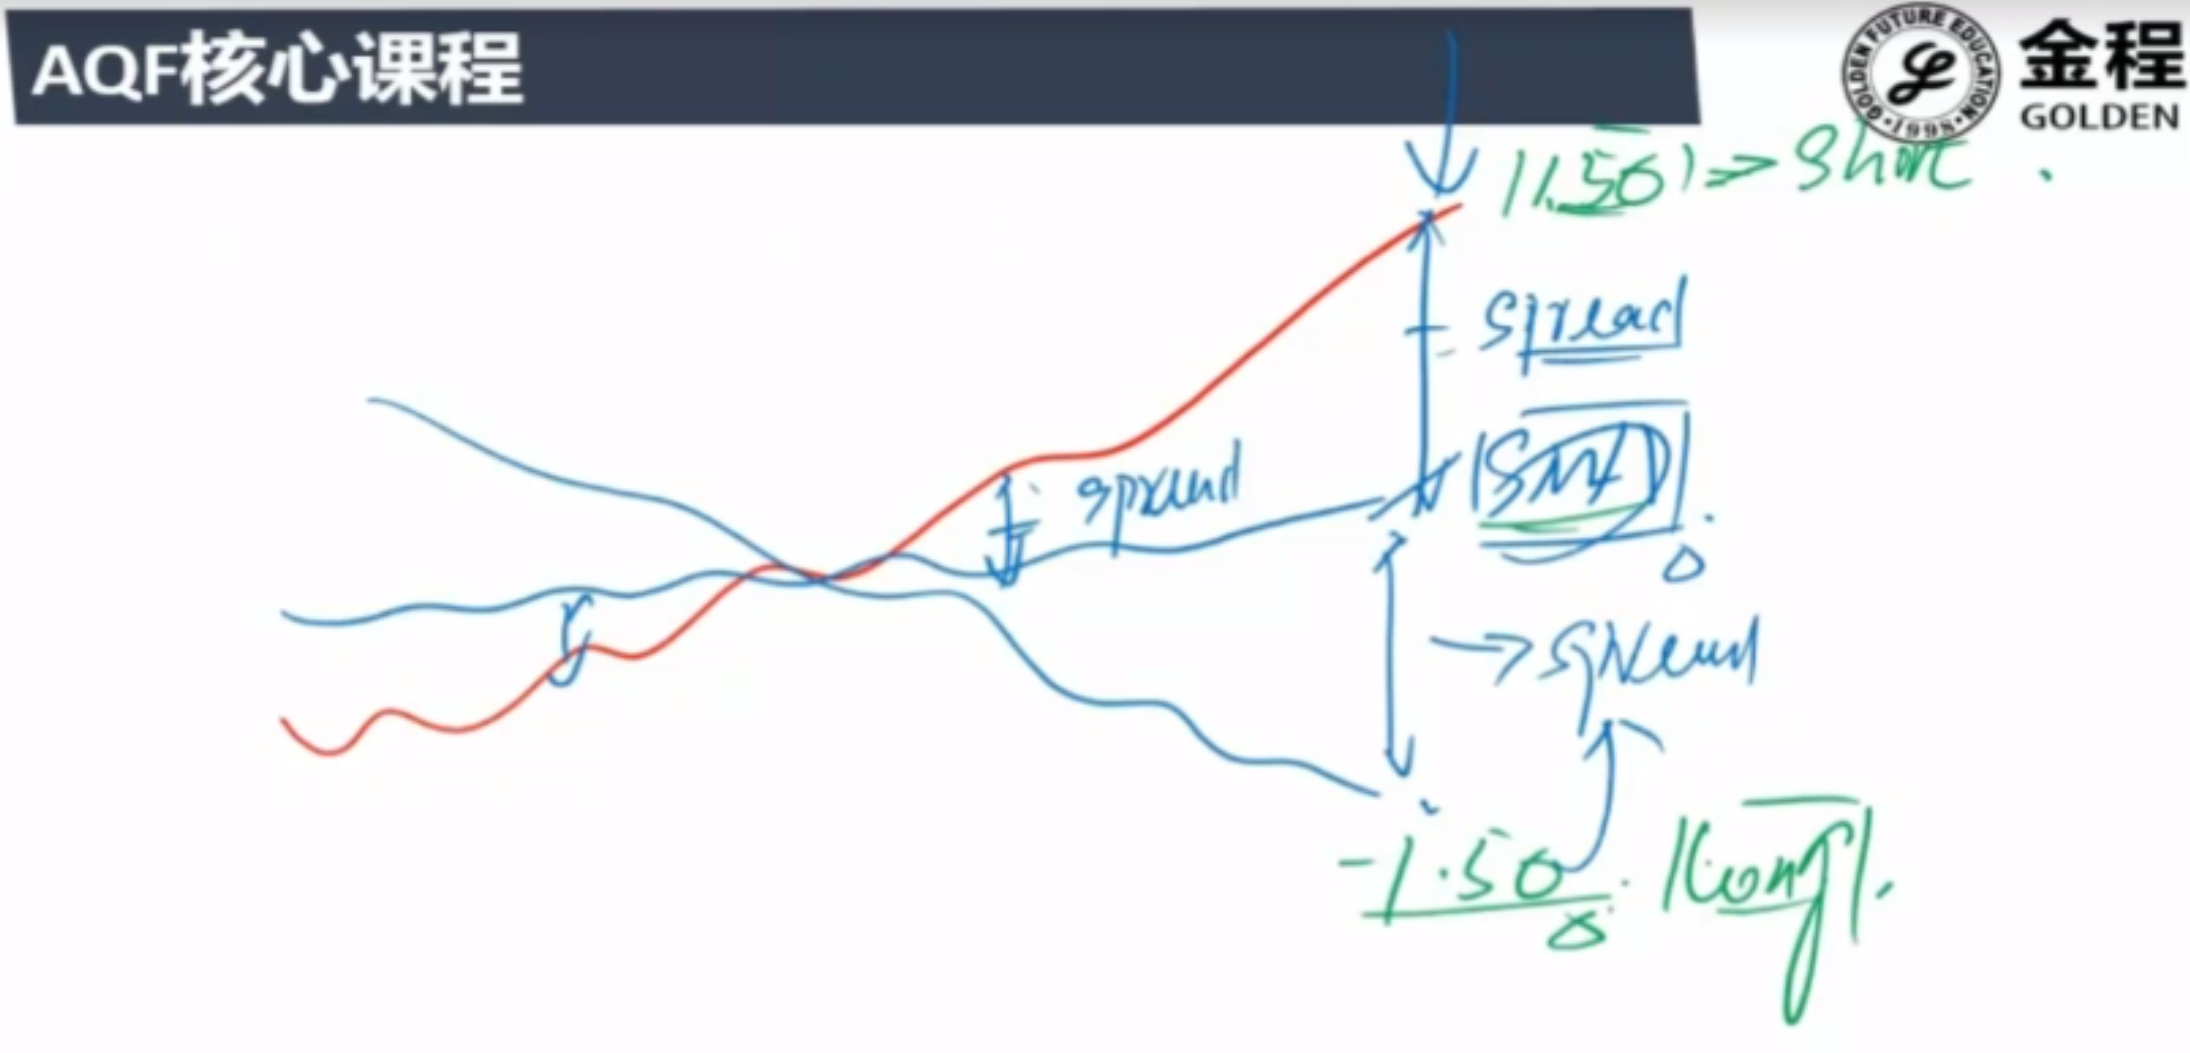 AQF核心课程
GOLDEN FUTURE EDUCATION
·1998·
金程
GOLDEN
1.50 => Short .
spread
spread
SMA
0
→ spread
-1.50
long